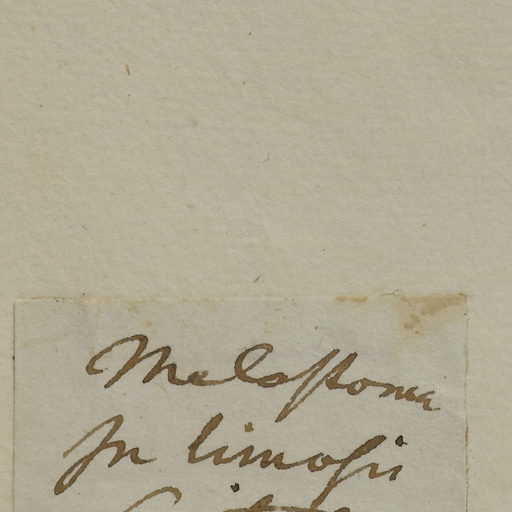 Melastoma
In limosis